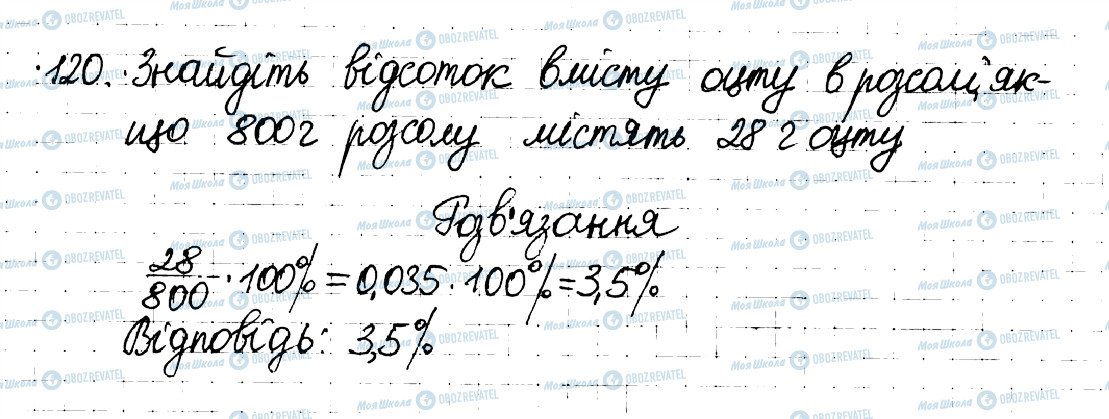 120. Знайдіть відсоток вмісту оцту в розсолі, як-
що 800 г розсолу містять 28 г оцту
Розв'язання
28/800 · 100% = 0,035 · 100% = 3,5%
Відповідь: 3,5%